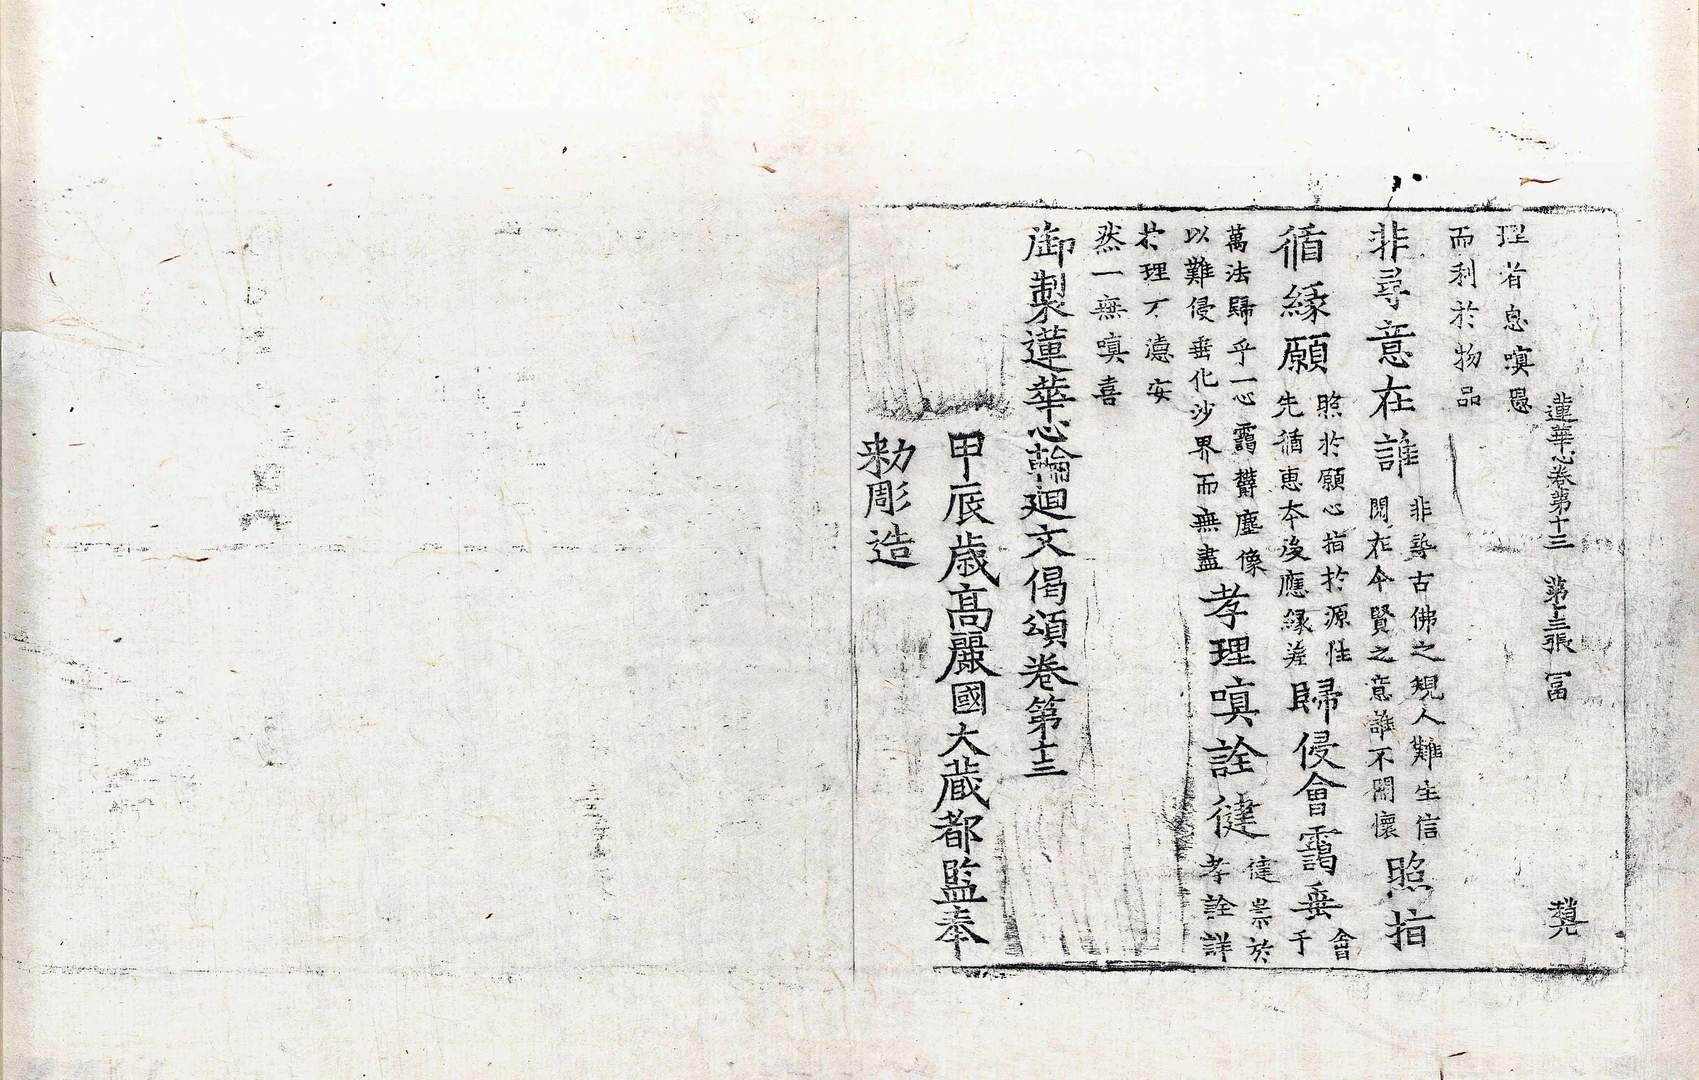 蓮華心卷第十三 第十三張 冨
理省息嗔愚
而利於物品
非尋意在誰
非尋古佛之規人難生信
閒在今賢之意誰不關懷
照指
循緣願
照於願心指於源性
先循惠本後應緣差
歸侵會靄垂
會
于
萬法歸乎一心靄欝塵像
以難侵垂化沙界而無盡
孝理嗔詮徤
徤崇於
孝詮詳
於理不安
然一無嗔喜
御製蓮華心輪廻文偈頌卷第十三
甲辰歳髙麗國大藏都監奉
勑彫造